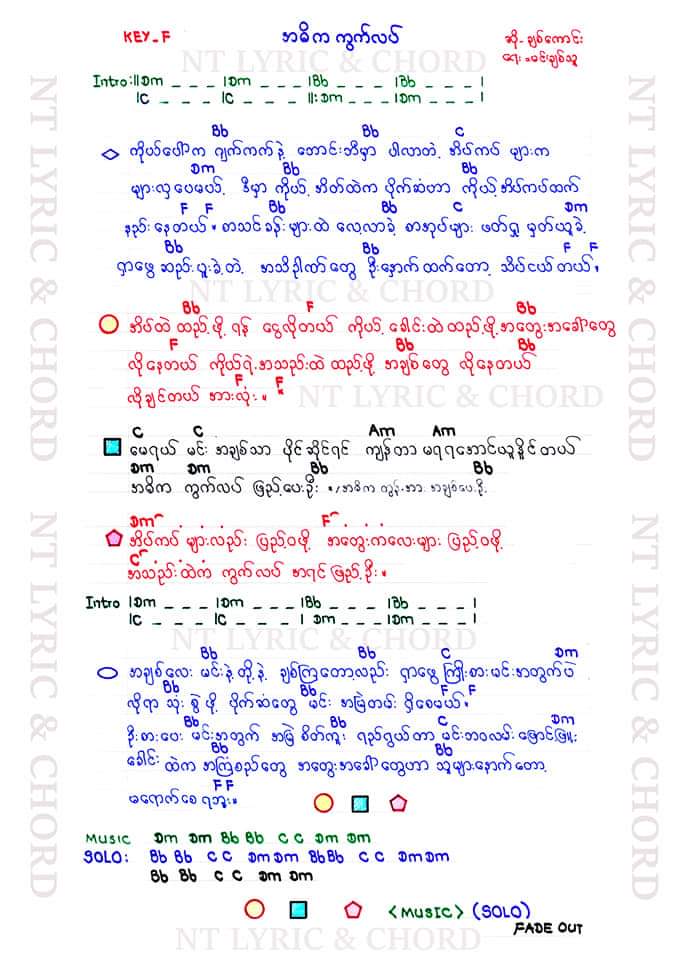 KEY_F
အဓိက ကွက်လပ်
ဆို - ချစ်ကောင်း
ရေး - မင်းချစ်သူ
NT LYRIC & CHORD
Intro :||Dm _ _ _ |Dm _ _ _ |Bb _ _ _ |Bb _ _ _ |
|C _ _ _ |C _ _ _ ||: Dm _ _ _ |Dm _ _ _ |
Bb Bb C
ကိုယ်ပေါ်က ဂျက်ကက်နဲ့ ဘောင်းဘီမှာ ပါလာတဲ့ အိပ်ကပ် များက
Dm Bb Bb
များလှပေမယ့် ဒီမှာ ကိုယ့် အိတ်ထဲက ပိုက်ဆံဟာ ကိုယ့်အိပ်ကပ်ထက်
F F Bb Bb C Dm
နည်းနေတယ်။ စာသင်ခန်းများထဲ လေ့လာခဲ့ စာအုပ်များ ဖတ်ရှု မှတ်ယူခဲ့
Bb Bb F F
ရှာဖွေ ဆည်းပူးခဲ့တဲ့ အသိဉာဏ်တွေ ဦးနှောက်ထက်တော့ သိပ်ငယ်တယ်။
NT LYRIC & CHORD
Bb F Bb
အိပ်ထဲ ထည့်ဖို့ ရန် ငွေလိုတယ် ကိုယ့် ခေါင်းထဲထည့်ဖို့ အတွေးအခေါ်တွေ
F Bb Bb
လိုနေတယ် ကိုယ့်ရဲ့ အသည်းထဲ ထည့်ဖို့ အချစ်တွေ လိုနေတယ်
F F
လိုချင်တယ် အားလုံး။ ။
NT LYRIC & CHORD
C C Am Am
မေရယ် မင်း အချစ်သာ ပိုင်ဆိုင်ရင် ကျန်တာ မရရအောင်ယူနိုင်တယ်
Dm Dm Bb Bb
အဓိက ကွက်လပ် ဖြည့်ပေးဦး ။ /အဓိက အချစ်ပေးဦး
Dm F
အိပ်ကပ် များလည်း ပြည့်ဝဖို့ အတွေးကလေးများ ပြည့်ဝဖို့
C
အသည်းထဲက ကွက်လပ် အရင်ဖြည့်ဦး။
Intro |Dm _ _ _ |Dm _ _ _ |Bb _ _ _ |Bb _ _ _ |
|C _ _ _ |C _ _ _ | Dm _ _ _ |Dm _ _ _ |
NT LYRIC & CHORD
Bb Bb C Dm
အချစ်လေး မင်းနဲ့တို့နဲ့ ချစ်ကြတော့လည်း ရှာဖွေ ကြိုးစားမင်းအတွက်ပဲ
Bb Bb F F
လိုရာ သုံးစွဲဖို့ ပိုက်ဆံတွေ မင်း အမြဲတမ်း ရှိစေမယ်။
Bb Bb C Dm
ဦးစားပေး မင်းအတွက် အမြဲ စိတ်ကူး ရည်ရွယ်တာ မင်းဘဝလမ်း ဖြောင့်ဖြူး
Bb Bb
ခေါင်းထဲက အကြံစည်တွေ အတွေးအခေါ်တွေဟာ သူများနောက်တော့
F F
မရောက်စေရဘူး။
MUSIC Dm Dm Bb Bb C C Dm Dm
SOLO: Bb Bb C C Dm Dm Bb Bb C C Dm Dm
Bb Bb C C Dm Dm
<MUSIC> (SOLO)
FADE OUT
NT LYRIC & CHORD
NT LYRIC & CHORD
NT LYRIC & CHORD
NT LYRIC & CHORD
NT LYRIC & CHORD